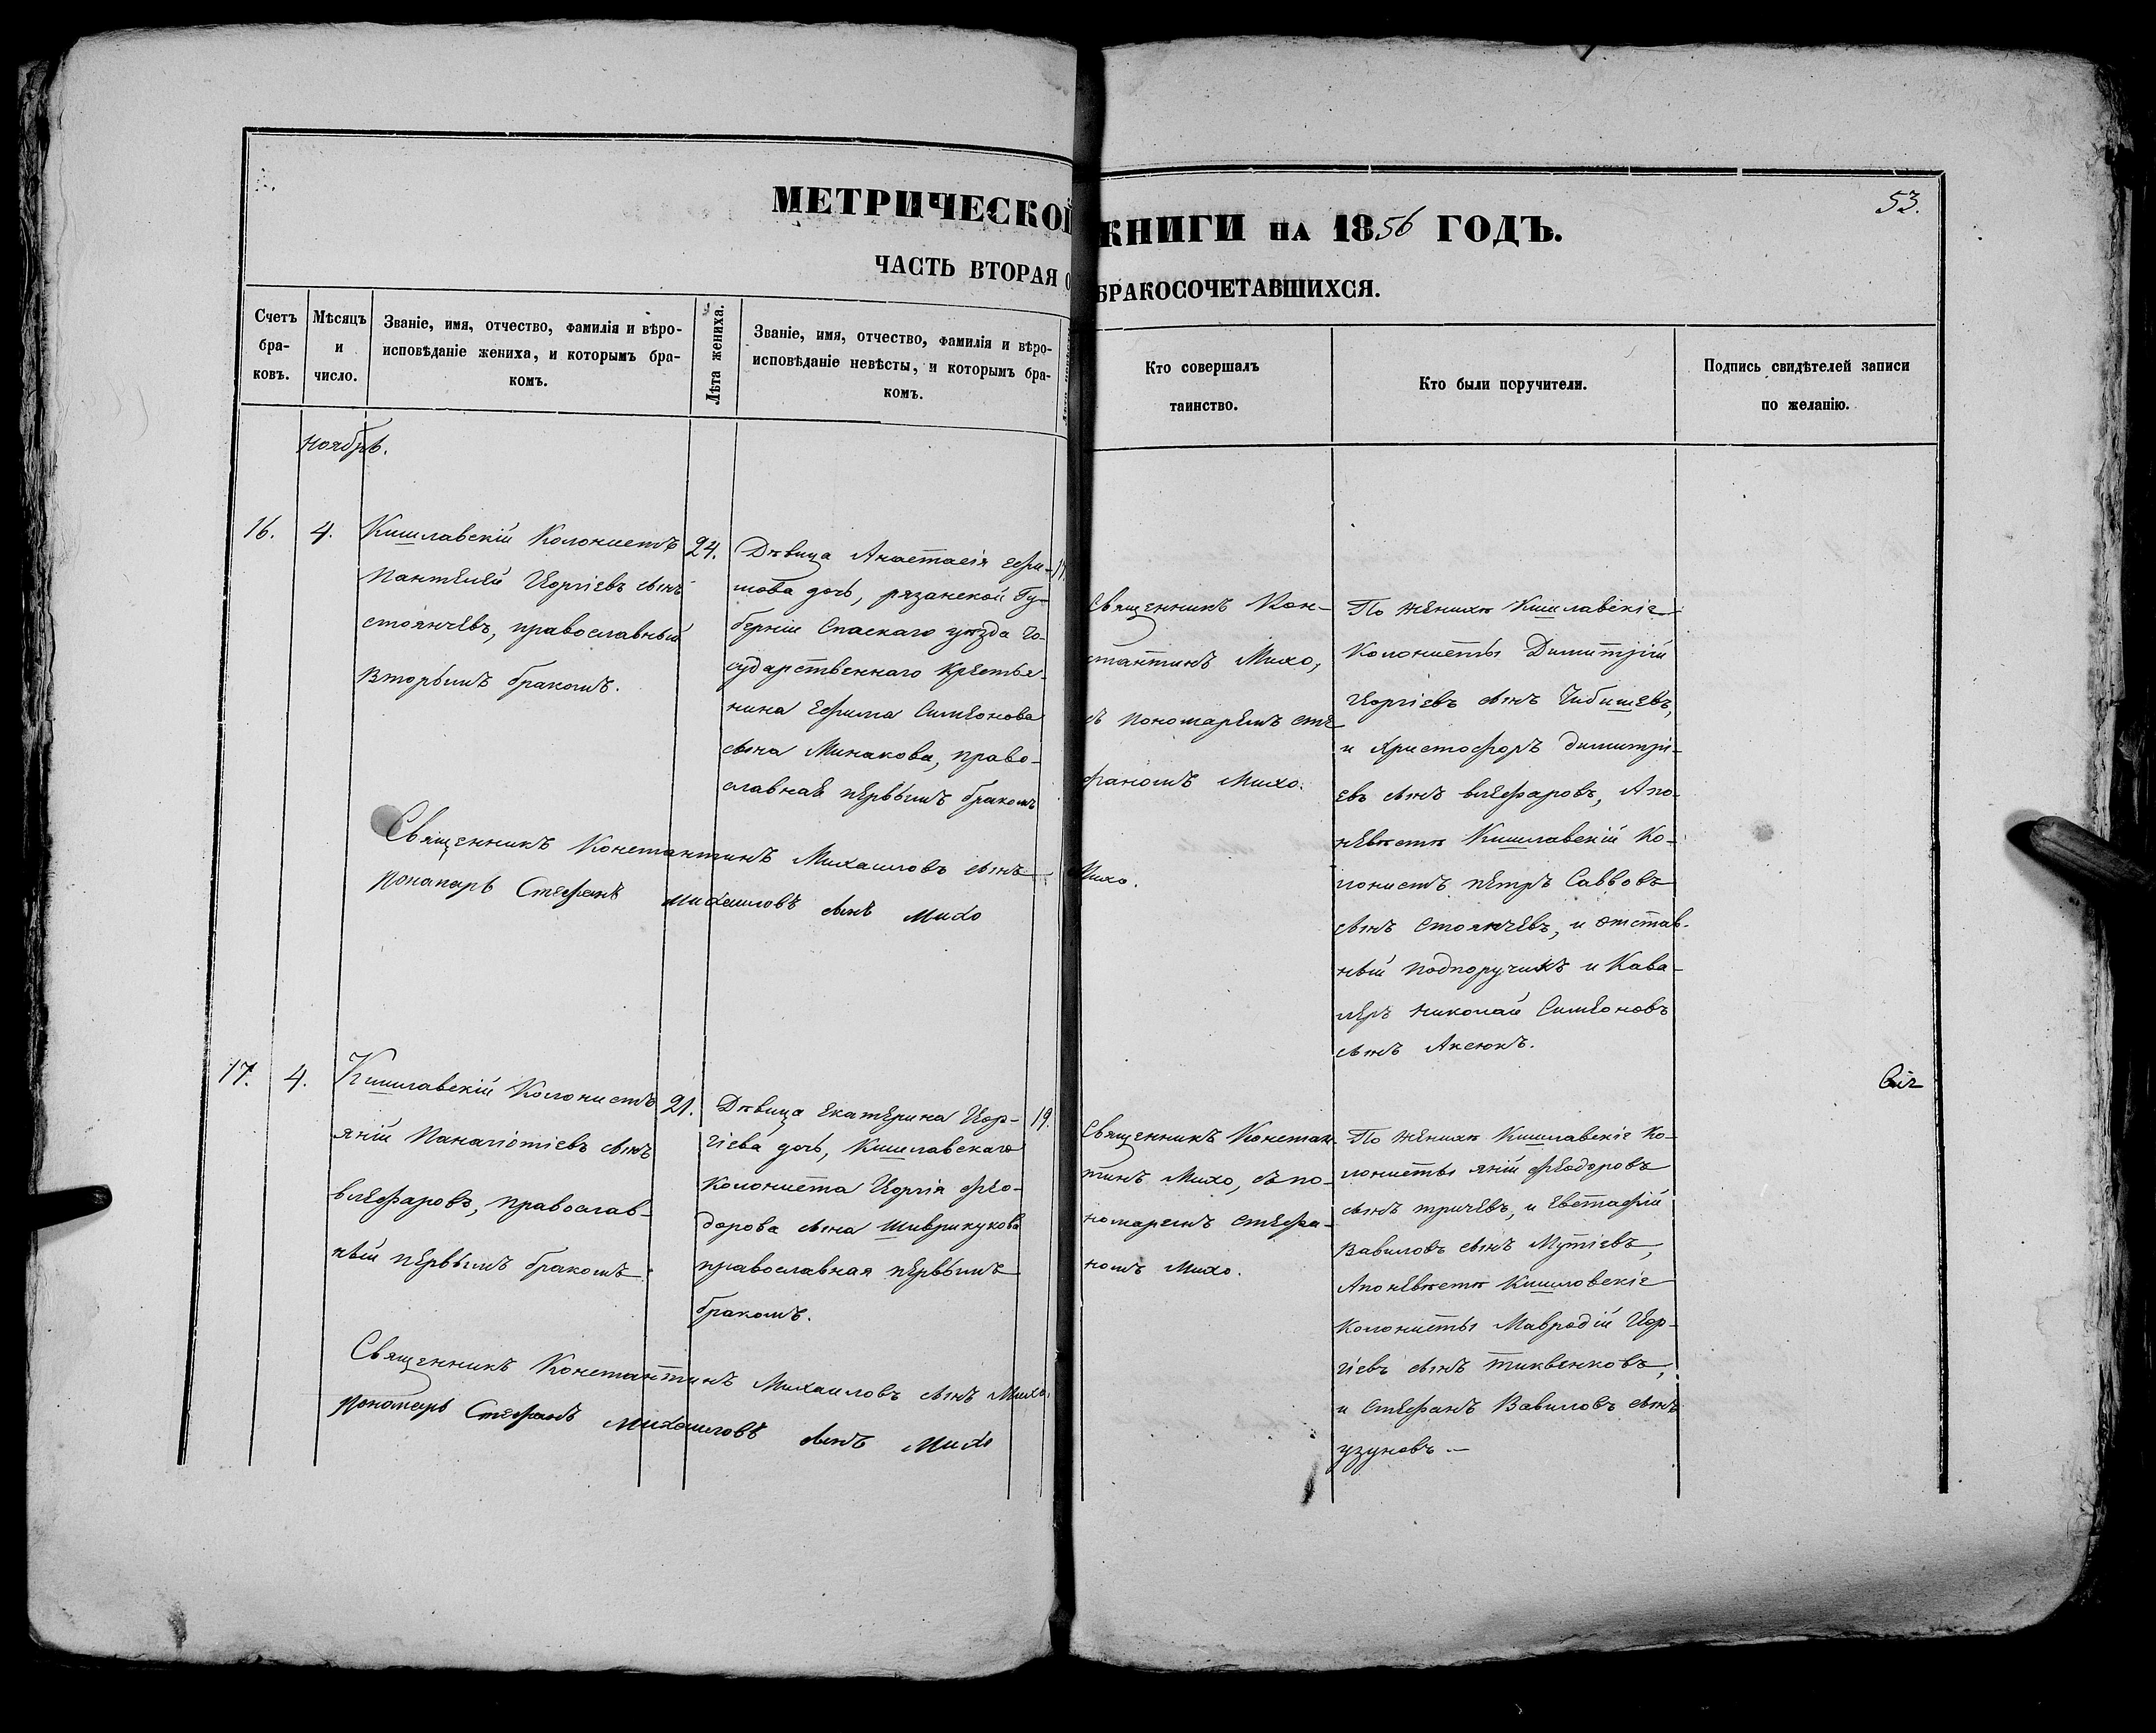 МЕТРИЧЕСКОЙ КНИГИ НА 1856 ГОДЪ.
53.
ЧАСТЬ ВТОРАЯ О БРАКОСОЧЕТАВШИХСЯ.
Счетъ
бра-
ковъ.
Мѣсяцъ
и
число.
Званіе, имя, отчество, фамилія и вѣро-
исповѣданіе жениха, и которымъ бра-
комъ.
Лѣта жениха.
Званіе, имя, отчество, фамилія и вѣро-
исповѣданіе невѣсты, и которымъ бра-
комъ.
Кто совершалъ
таинство.
Кто были поручители.
Подпись свидѣтелей записи
по желанію.
Ноябрь.
16.
4.
Кишлавскій Колонистъ
Пантелей Иоргіевъ сынъ
стоянчевъ, православный
вторымъ бракомъ.
24.
Дѣвица Анастасія Ефи-
мова дочь, рязанской Гу-
берніи Спаскаго уѣзда Го-
сударственнаго Крестья-
нина Ефима Симеонова
сына Минакова, право-
славная первымъ бракомъ
Священникъ Кон-
стантинъ Михо,
съ пономаремъ сте
фаномъ Михо.
По женихѣ Кишлавскіе
Колонисты Димитрій
Иоргіевъ сынъ Чибишевъ,
и Христофоръ димитрі-
евъ сынъ влефаровъ, А по
невѣстѣ Кишлавскій Ко-
лонистъ петръ Саввовъ
сынъ стоянчевъ, и отстав-
ный подпоручикъ и Кава-
леръ Николай Симеоновъ
сынъ Аксюкъ.
Священникъ Константинъ Михаиловъ сынъ Михо.
Понамарь Стефанъ Михаиловъ сынъ Михо
17.
4.
Кишлавскій Колонистъ
яній Панагіотіевъ сынъ
влефаровъ, православ-
ный первымъ бракомъ.
21.
Дѣвица Екатерина Иор-
гіева дочь, Кишлавскаго
Колониста Иоргія фео-
дорова сына Шиврикукова
православная первымъ
бракомъ.
19.
Священникъ Констан-
тинъ Михо, съ по-
номаремъ стефа-
номъ Михо.
По женихѣ Кишлавскіе Ко-
лонисты яній феодоровъ
сынъ тричевъ, и Евстафій
Вавиловъ сынъ Мутіевъ,
А по невѣстѣ Кишловскіе
Колонисты Мавродій Иор-
гіевъ сынъ тиквенковъ,
и стефанъ Вавиловъ сынъ
узуновъ.—
Священникъ Константинъ Михаиловъ сынъ Михо.
Пономарь Стефанъ Михаиловъ сынъ Михо